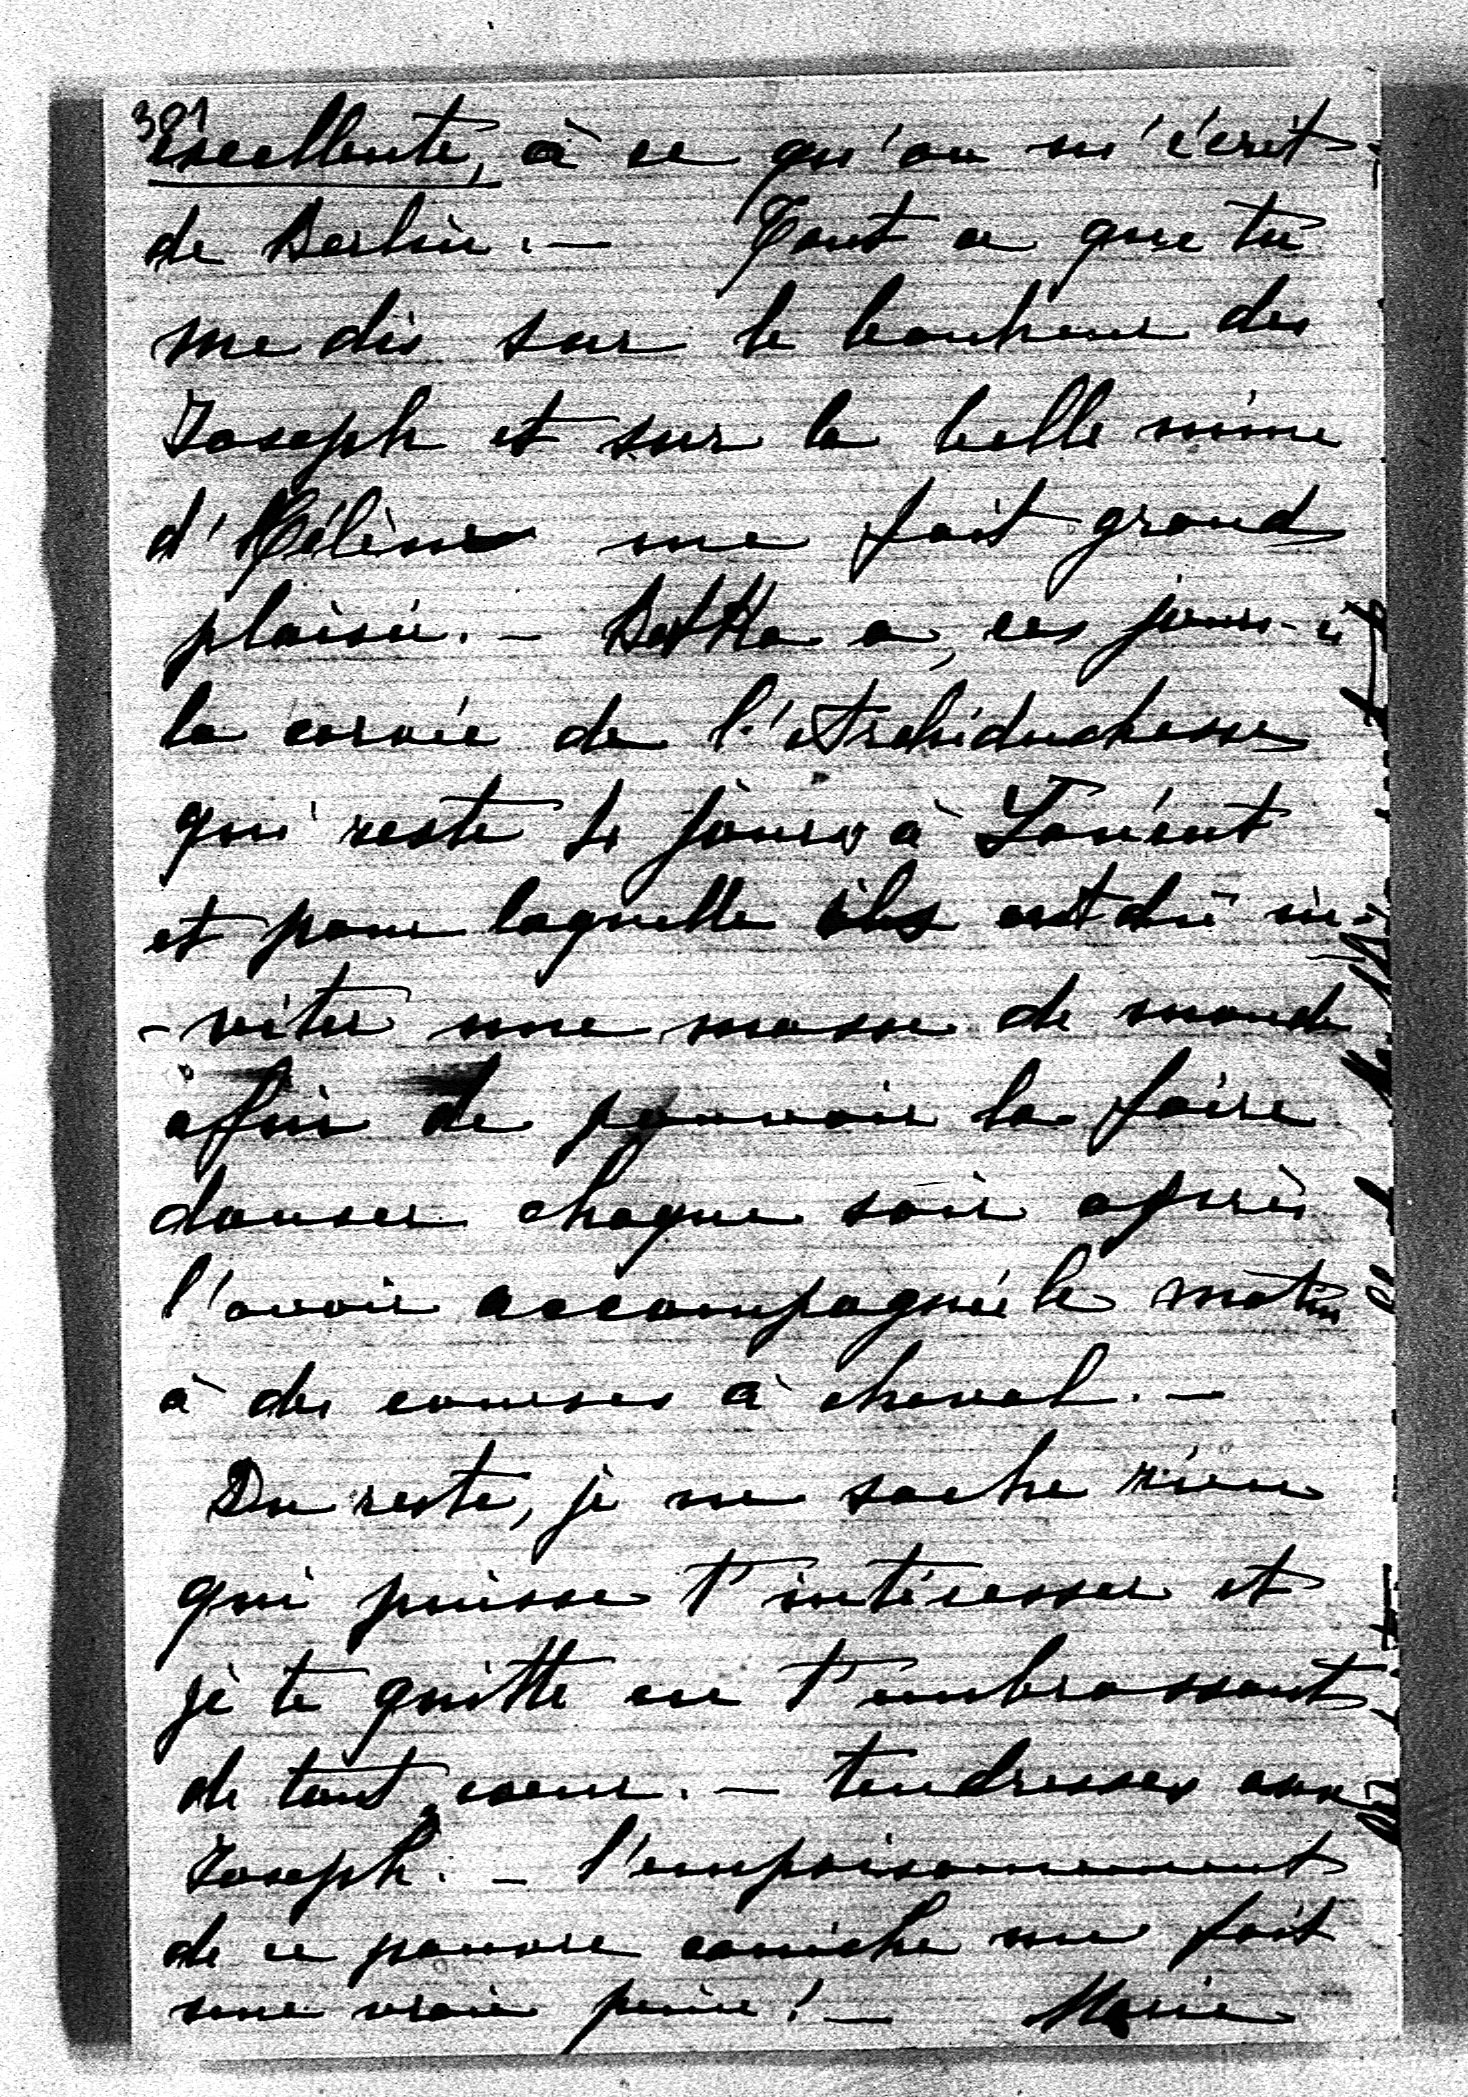 301
excellente, à ce qu'on m'écrit
de Berlin. — Tout ce que tu
me dis sur le bonheur des
Joseph et sur la belle mine
d'Hélène me fait grand
plaisir. — Betka a, ces jours-ci
la corvée de l'Archiduchesse
qui reste 4 jours à Łańcut
et pour laquelle ils ont dû in-
-viter une masse de monde
afin de pouvoir la faire
danser chaque soir après
l'avoir accompagnée le matin
à des courses à cheval. —
Du reste, je ne sache rien
qui puisse t'intéresser et
je te quitte en t'embrassant
de tout coeur. — tendresses aux
Joseph. — l'empoisonnement
de ce pauvre caniche me fait
une vraie peine! — Marie